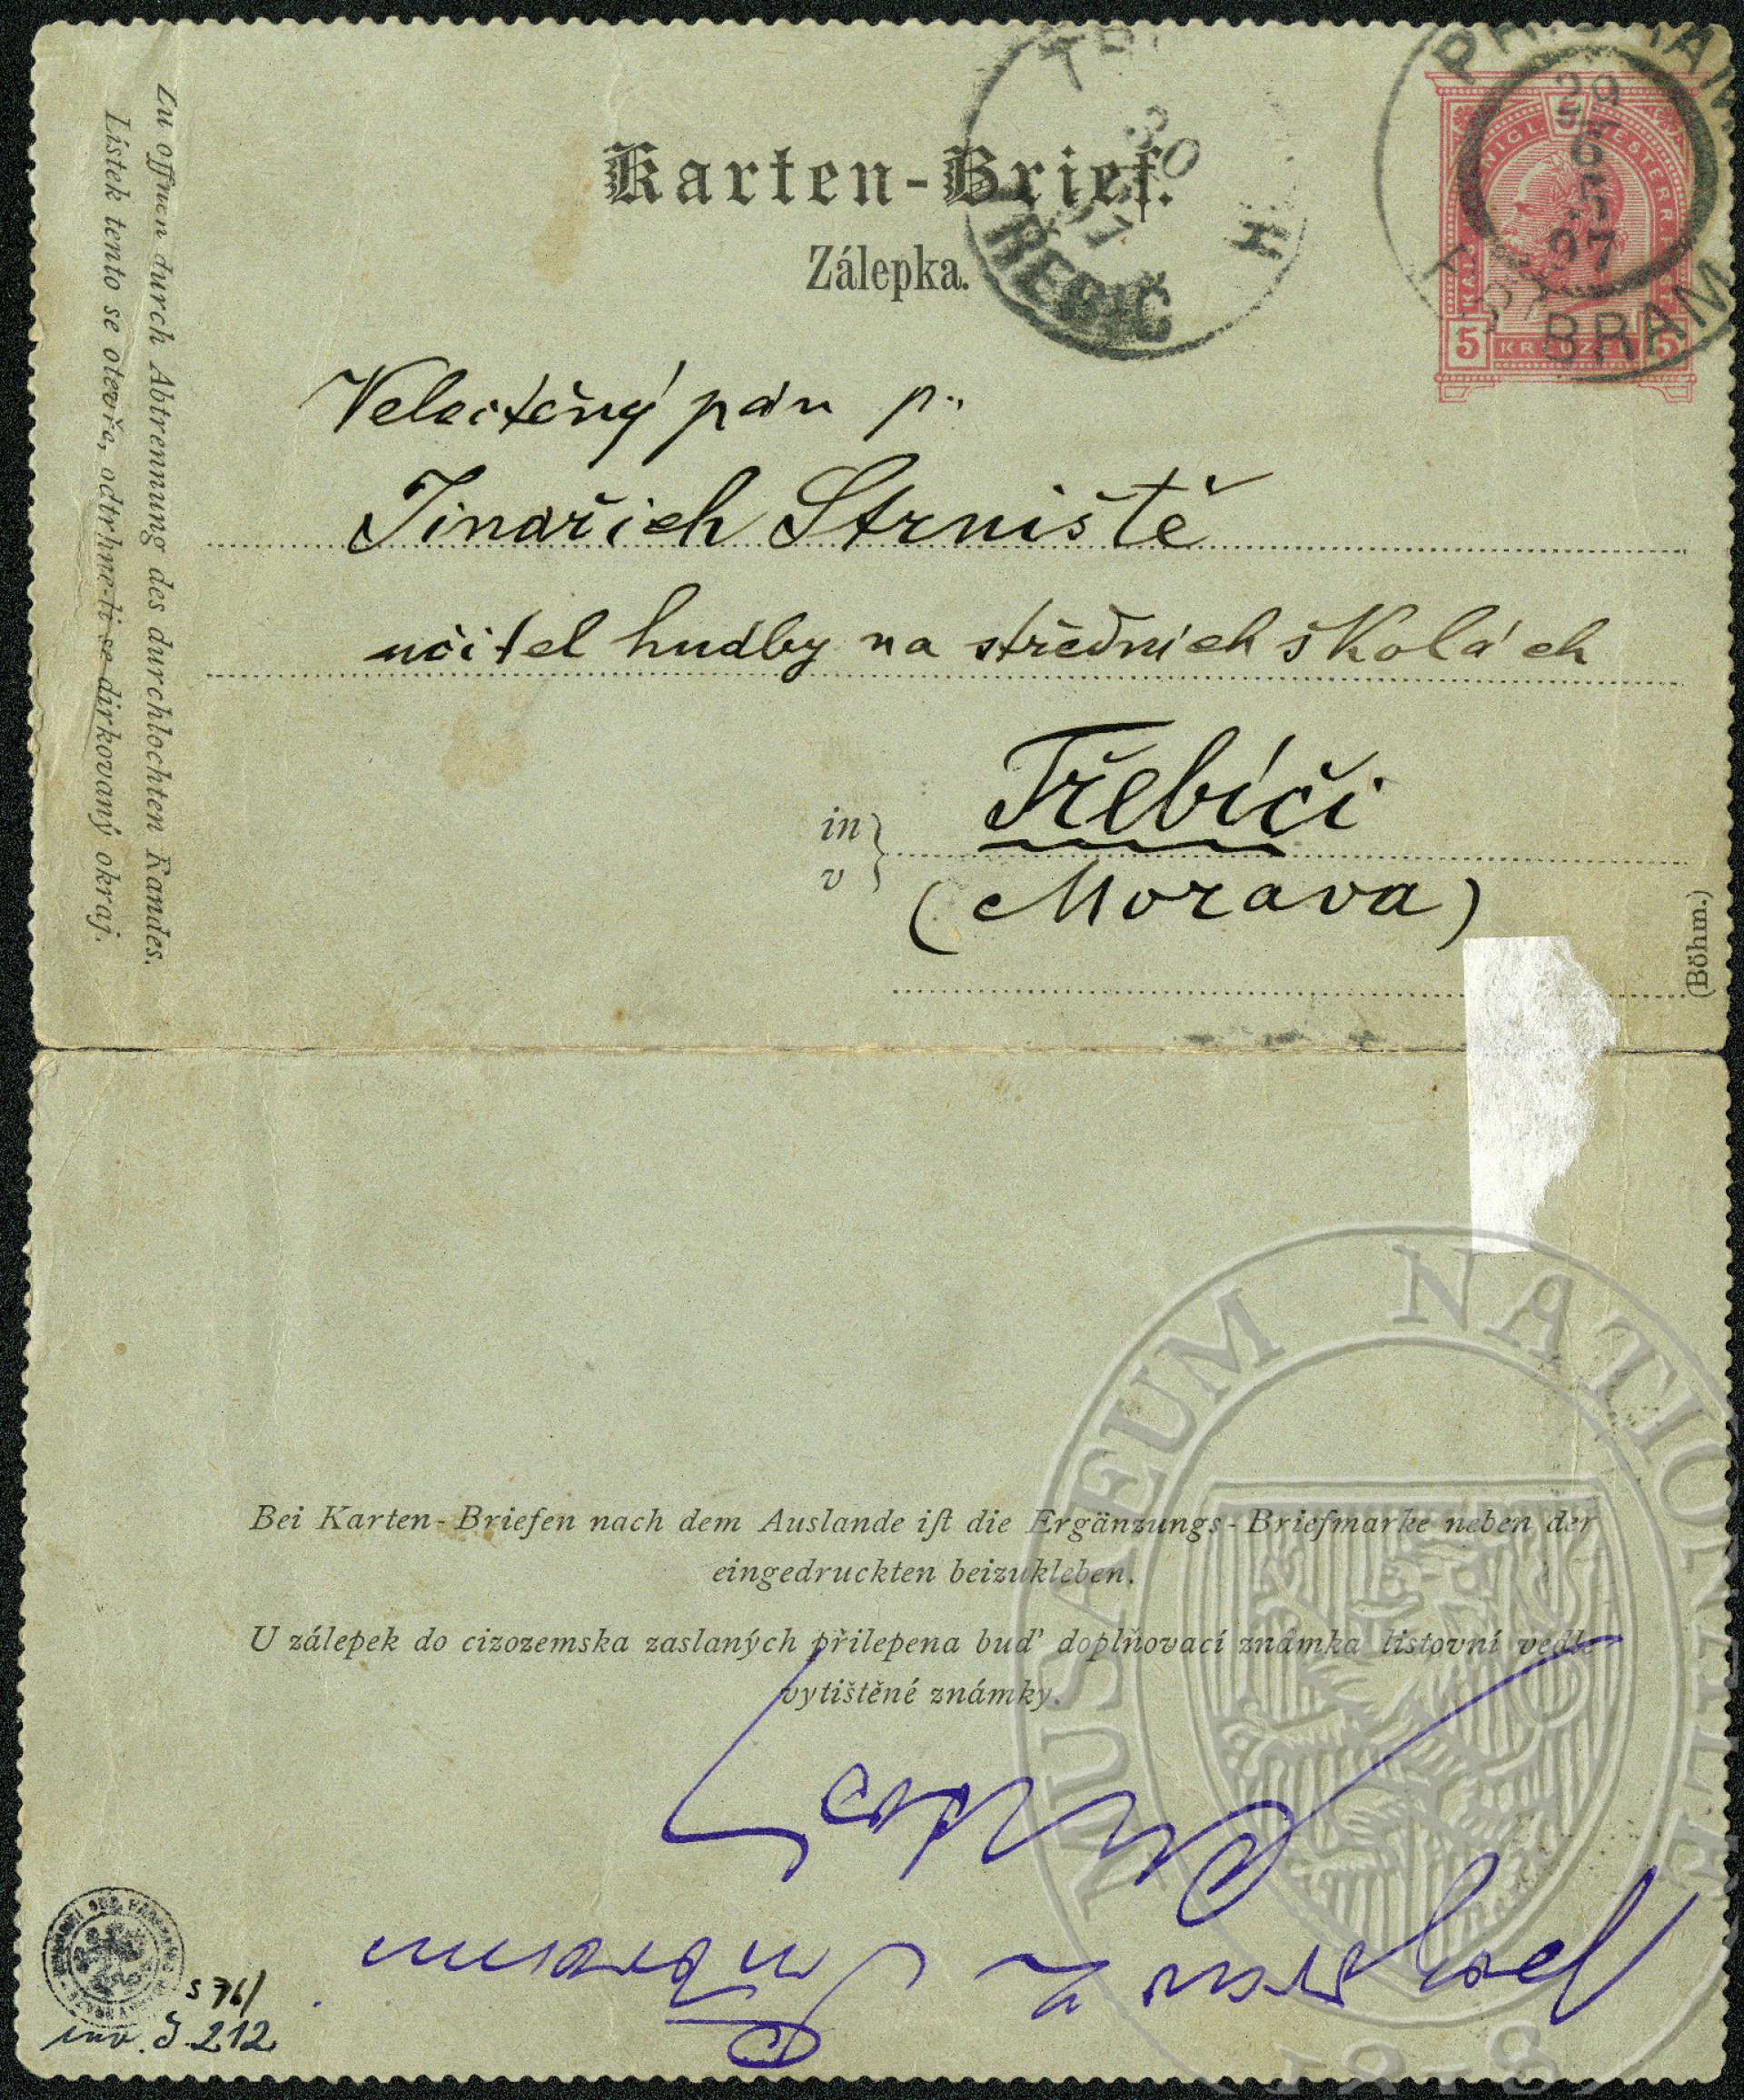 Karten-Brief.
Zálepka.
Zu öffnen durch Abtrennung des durchlochten Randes.
Lístek tento se otevře, odtrhne-li se dírkovaný okraj.
PŘÍBRAM
29
5
97
BRAM
KAIS. KÖNIGL. OESTERR. POST
5 KREUZER 5
30
97
TŘEBIČ
Velectěný pán p.
Jindřich Strniště
učitel hudby na středních školách
in
v
Třebíči
(Morava)
(Böhm.)
Bei Karten-Briefen nach dem Auslande iſt die Ergänzungs-Briefmarke neben der
eingedruckten beizukleben.
U zálepek do cizozemska zaslaných přilepena buď doplňovací známka listovní vedle
vytištěné známky.
Pozdrav z Příbrami
S 76/
inv. č. 212
MUSAEUM NATIONALE
1818